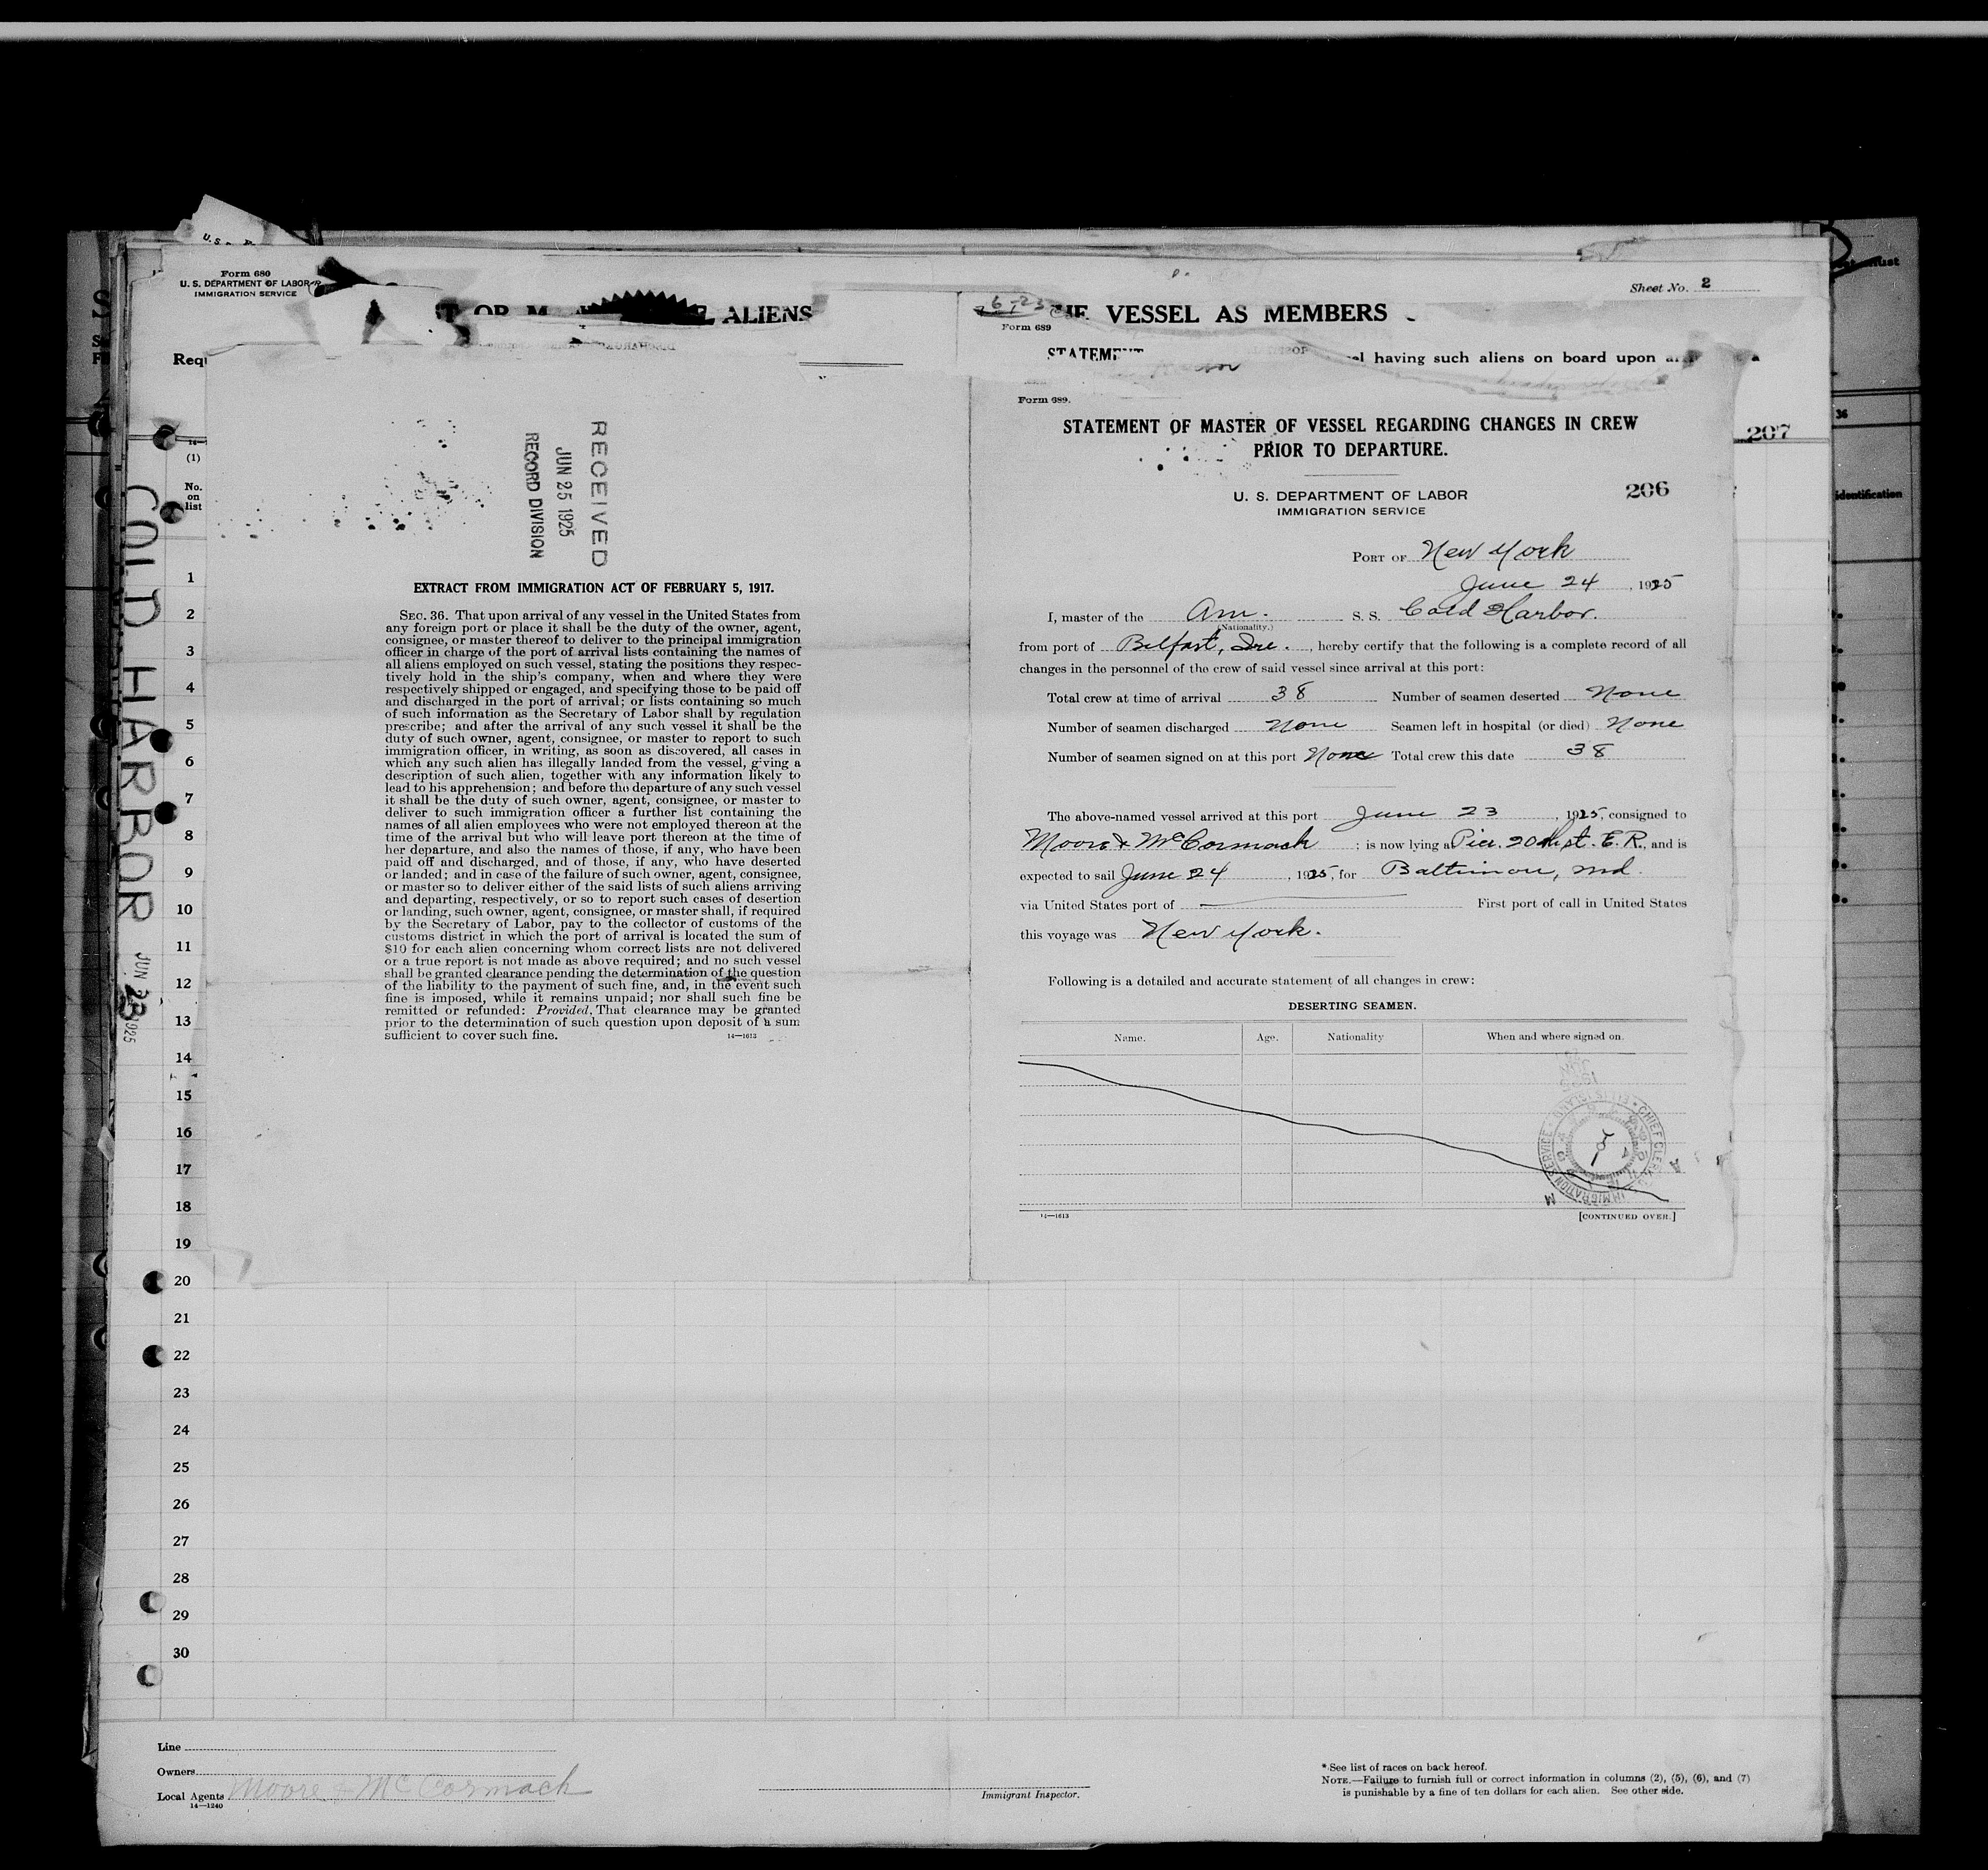 Form 680
U. S. DEPARTMENT OF LABOR
IMMIGRATION SERVICE
ALIENS
VESSEL AS MEMBERS
Sheet No. 2
6-23
Form 689
STATEMENT
having such aliens on board upon
Form 689.
STATEMENT OF MASTER OF VESSEL REGARDING CHANGES IN CREW
PRIOR TO DEPARTURE.
207
U. S. DEPARTMENT OF LABOR
IMMIGRATION SERVICE
206
PORT OF New York
June 24, 1925
I, master of the Am. S. S. Cold Harbor.
(Nationality.)
from port of Belfast, Ire., hereby certify that the following is a complete record of all
changes in the personnel of the crew of said vessel since arrival at this port:
Total crew at time of arrival 38 Number of seamen deserted None
Number of seamen discharged None Seamen left in hospital (or died) None
Number of seamen signed on at this port None Total crew this date 38
The above-named vessel arrived at this port June 23, 1925, consigned to
Moore & McCormack; is now lying a Pier. 20th st. E. R., and is
expected to sail June 24, 1925, for Baltimore, Md.
via United States port of First port of call in United States
this voyage was New York.
Following is a detailed and accurate statement of all changes in crew:
DESERTING SEAMEN.
Name. Age. Nationality When and where signed on.
IMMIGRATION SERVICE
CHIEF CLERK
14—1613
[CONTINUED OVER.]
RECEIVED
JUN 25 1925
RECORD DIVISION
EXTRACT FROM IMMIGRATION ACT OF FEBRUARY 5, 1917.
SEC. 36. That upon arrival of any vessel in the United States from
any foreign port or place it shall be the duty of the owner, agent,
consignee, or master thereof to deliver to the principal immigration
officer in charge of the port of arrival lists containing the names of
all aliens employed on such vessel, stating the positions they respec-
tively hold in the ship's company, when and where they were
respectively shipped or engaged, and specifying those to be paid off
and discharged in the port of arrival; or lists containing so much
of such information as the Secretary of Labor shall by regulation
prescribe; and after the arrival of any such vessel it shall be the
duty of such owner, agent, consignee, or master to report to such
immigration officer, in writing, as soon as discovered, all cases in
which any such alien has illegally landed from the vessel, giving a
description of such alien, together with any information likely to
lead to his apprehension; and before the departure of any such vessel
it shall be the duty of such owner, agent, consignee, or master to
deliver to such immigration officer a further list containing the
names of all alien employees who were not employed thereon at the
time of the arrival but who will leave port thereon at the time of
her departure, and also the names of those, if any, who have been
paid off and discharged, and of those, if any, who have deserted
or landed; and in case of the failure of such owner, agent, consignee,
or master so to deliver either of the said lists of such aliens arriving
and departing, respectively, or so to report such cases of desertion
or landing, such owner, agent, consignee, or master shall, if required
by the Secretary of Labor, pay to the collector of customs of the
customs district in which the port of arrival is located the sum of
$10 for each alien concerning whom correct lists are not delivered
or a true report is not made as above required; and no such vessel
shall be granted clearance pending the determination of the question
of the liability to the payment of such fine, and, in the event such
fine is imposed, while it remains unpaid; nor shall such fine be
remitted or refunded: Provided, That clearance may be granted
prior to the determination of such question upon deposit of a sum
sufficient to cover such fine.
14—1613
COLD HARBOR JUN 23 1925
(1)
No.
on
list
1
2
3
4
5
6
7
8
9
10
11
12
13
14
15
16
17
18
19
20
21
22
23
24
25
26
27
28
29
30
36
identification
Line
Owners
Local Agents Moore & McCormack
14—1240
Immigrant Inspector.
* See list of races on back hereof.
NOTE.—Failure to furnish full or correct information in columns (2), (5), (6), and (7)
is punishable by a fine of ten dollars for each alien. See other side.